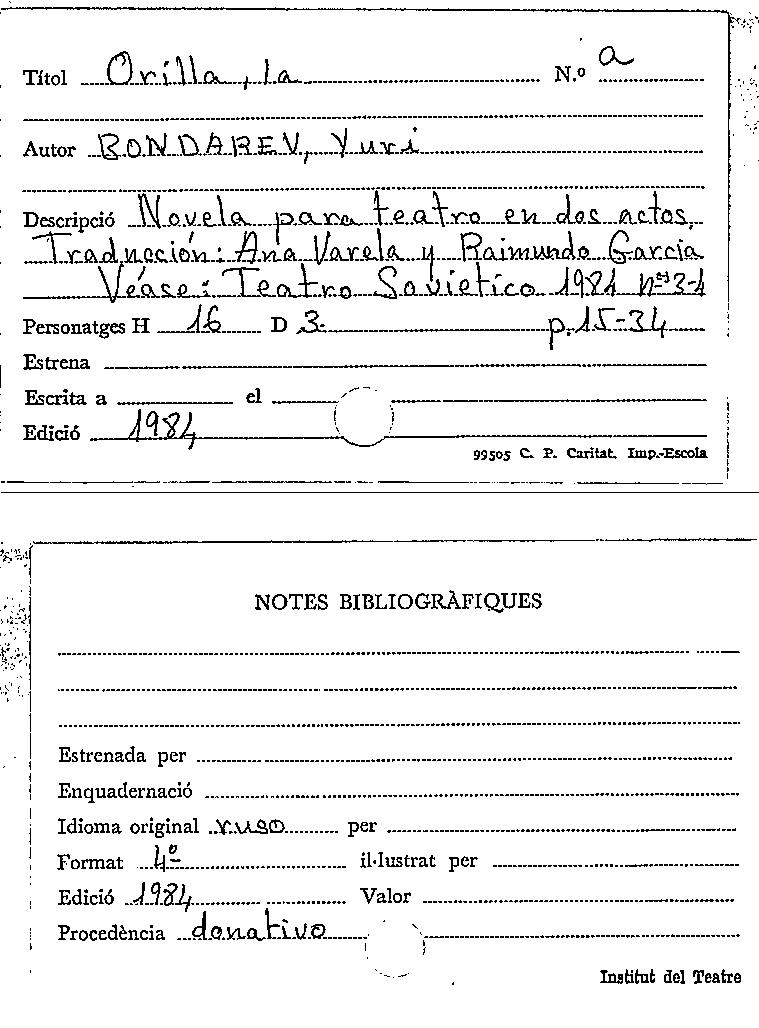 Títol Orilla, la N.º a
Autor BONDAREV, Yuri
Descripció Novela para teatro en dos actos.
Traducción: Ana Varela y Raimundo García
Véase: Teatro Sovietico 1984 nos 3-4
Personatges H 16 D 3. p. 15-34
Estrena
Escrita a el
Edició 1984
99505 C. P. Caritat. Imp.-Escola
NOTES BIBLIOGRÀFIQUES
Estrenada per
Enquadernació
Idioma original ruso per
Format 4º il·lustrat per
Edició 1984 Valor
Procedència donativo
Institut del Teatre